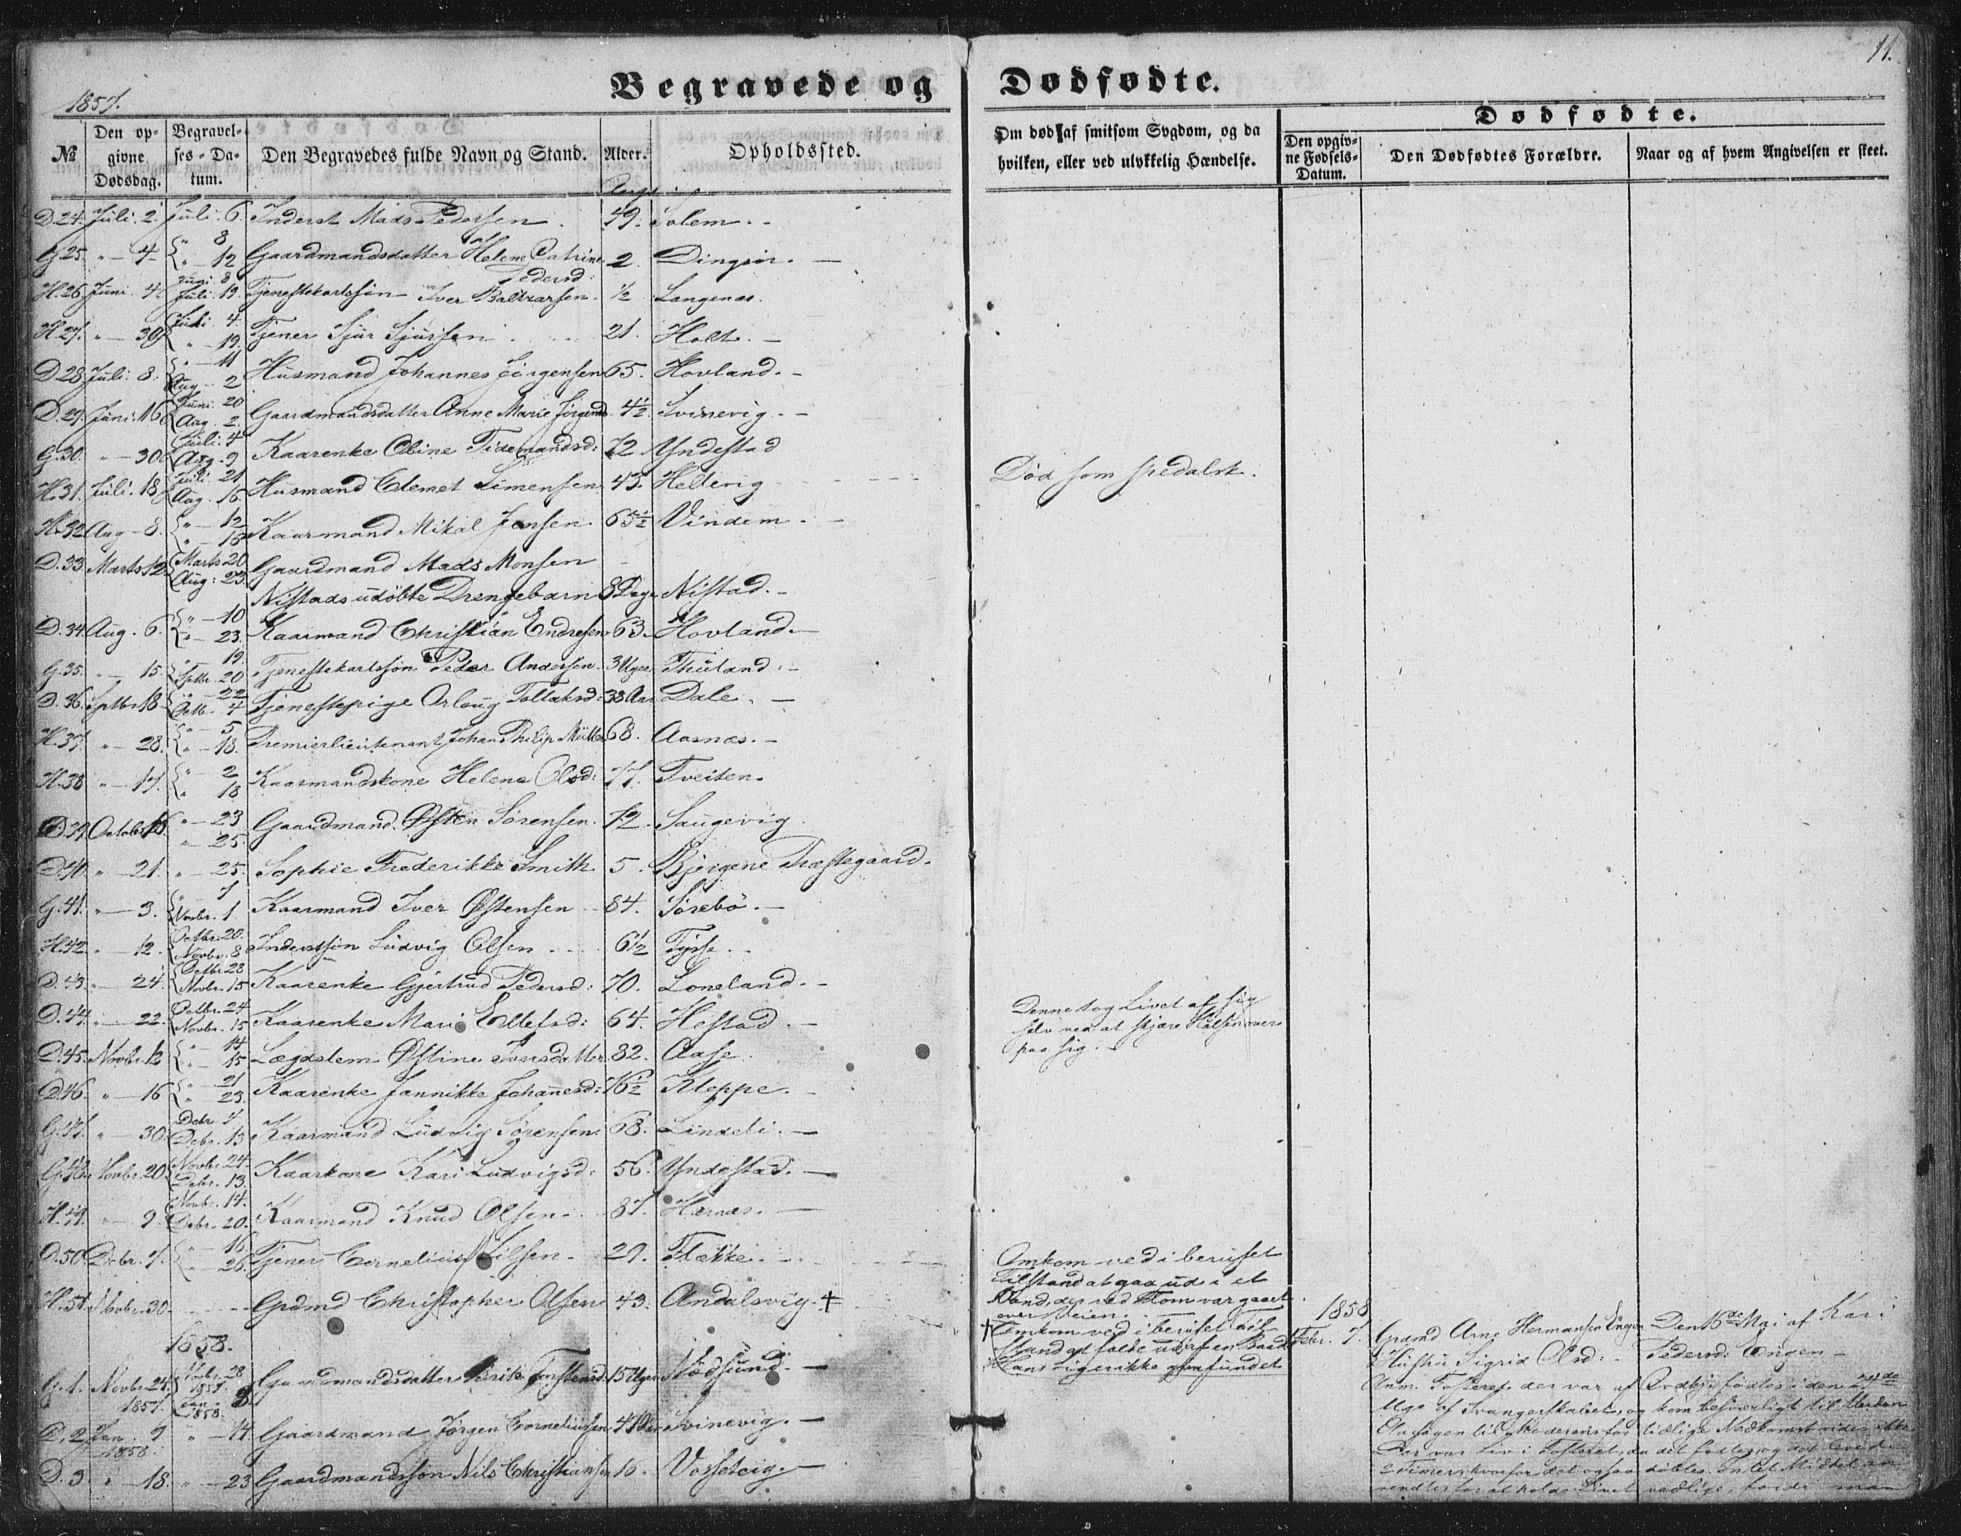 11.
Begravede og Dødfødte.
1857.
Dødfødte.
№
Den opgivne Dødsdag.
Begravelses-Datum.
Den Begravedes fulde Navn og Stand.
Alder.
Opholdssted.
Om død af smitsom Sygdom, og da hvilken, eller ved ulykkelig Hændelse.
Den opgivne Fødsels-Datum.
Den Dødfødtes Forældre.
Naar og af hvem Angivelsen er skeet.
D. 24. Juli. 2. Juli. 6. Inderst Mads Pedersen 49. Solem.
G. 25. " 4. " 8 " 12 Gaardmandsdatter Helene Catrine Pedersd: 2. Dingsør.
H. 26. Juni. 4. Juni. 8 Juli. 19. Tjenestekarlssøn Iver Baltzarsen. 1/2 Langenæs.
H. 27. " 30 Juli. 4. " 19. Tjener Sjur Sjursen 21. Holt.
D. 28. Juli. 8. " 11 Aug 2 Husmand Johannes Jörgensen 65. Hovland.
D. 29. Juni. 16 Juni. 20 Aug. 2. Gaardmandsdatter Anne Marie Jørgensd. 4 1/2 Svinevig.
G. 30. " 30. Juli. 4 Aug. 9 Kaarenke Oline Tidemandsd: 72 Yndestad
H. 31. Juli. 18 Juli. 21 Aug. 16 Husmand Clemet Simensen 45. Hellevig Død som spedalsk.
H. 32 Aug 8. " 12 " 16 Kaarmand Mikal Jensen. 65 1/2 Vindem.
D. 33. Marts 12 Marts 20 Aug: 23. Gaardmand Mads Monsen
Nistads udöbte Drengebarn 8 Dage Nistad.
D. 34. Aug. 6. " 10 " 23. Kaarmand Christian Endresen 63. Hovland.
G. 35. " 15. " 19. Sptbr. 20 Tjenestekarlssön Peder Andersen. 3 Uger. Thuland.
D. 36. Septbr 18 " 22 Octb. 4 Tjenestepige Orloug Tollaksd: 38 Aar Dale.
H. 37. " 28. " 5 " 18. Premierlieutenant Johan Philip Müller 68. Aasnæs.
H. 38 " 17. " 2 " 18 Kaarmandskone Helene Olsd: 77. Tveiten.
D. 39. October 18 " 23 " 25. Gaardmand Østen Sørensen. 72. Saugevig.
D. 40. " 21. " 25. Sophie Frederikke Smith 5. Bjergene Præstegaard.
G. 41. " 3. " 7 Novbr. 1. Kaarmand Iver Østensen 84. Sørebö.
H. 42 " 12. Octbr. 20. Novbr. 8 Inderstsøn Ludvig Olsen 6 1/2 Tysse.
D. 43. " 24. Octbr. 28 Novbr. 15 Kaarenke Gjertrud Pedersd: 70. Loneland.
D. 44. " 22. Octbr. 24 Novbr. 15 Kaarenke Mari Ellefsd: 64. Hestad. Denne tog Livet af sig
selv ved at skjære Halsen over
paa sig.
D. 45. Novbr. 12 " 14 " 15 Lægdslem Østine Iversdatter 82. Aase.
D. 46. " 16 " 21 " 23. Kaarenke Jannikke Johannesd: 76 1/2 Kleppe.
G. 47. " 30. Debr. 7 Debr. 13 Kaarmand Ludvig Sørensen 68. Lindeli.
G. 48. Novbr. 20. Novbr. 24. Debr. 13. Kaarkone Kari Ludvigsd: 56. Yndestad.
H. 49. " 9. Novbr. 14. Debr. 20. Kaarmand Knud Olsen 87. Hærnæs.
D. 50. Debr. 7. " 16 " 26. Tjener Cornelius Nilsen 29. Flække. Omkom ved i beruset
Tilstand at gaa ud i et
Vand, der ved Flom var gaaet
over Veien.
H. 51. Novbr. 30. Gdmd Christopher Olsen 43. Andalsvig. † † Omkom ved i beruset Til-
stand at falde ud af en Baad
Hans Lig er ikke gjenfundet
1858.
G. 1. Novbr. 24. 1857. Novbr. 28 1857. Jan. 1858. Gaardmandsdatter Brite Torstensd: 15 Uger Nødsund.
D. 2 Jan. 9 1858. " 14. Gaardmand Jørgen Corneliussen Svinevig.
D. 3. " 18. " 23 Gaardmandssøn Nils Christiansen Vosselvig.
1858
Febr. 7. Grdmd Arne Hermansen Engen Den 16de Mai af Kari
Hustru Sigrid Olsd: Pedersd: Engen
Anm. Fosteret, der var af fødtes i den
Uge af Svangerskabet, og kom besværligt til Verden
Aarsagen til
Der var Liv i Fosteret, da det fødtes, og det levede
2 Timer, hvorfor det ogsaa döbtes. Intet Middel an-
vendtes for at holde Livet vedlige, fordi man